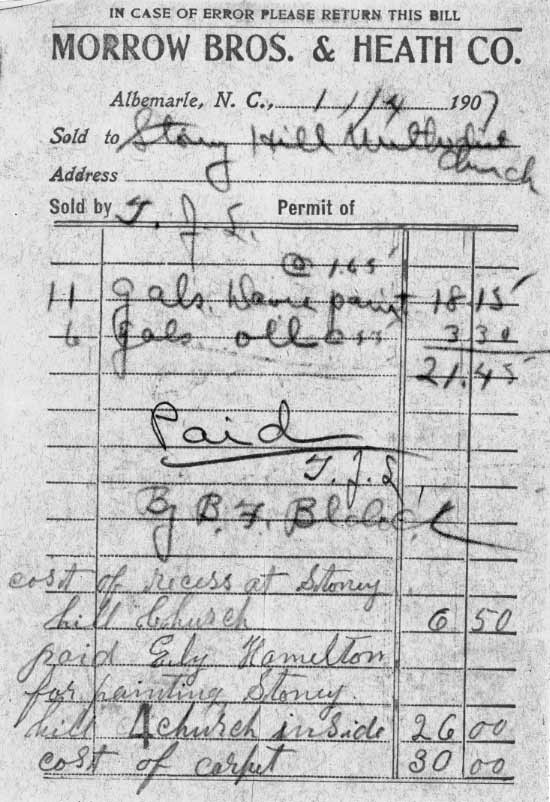 IN CASE OF ERROR PLEASE RETURN THIS BILL
MORROW BROS. & HEATH CO.
Albemarle, N. C., 11/4 1907
Sold to Stony Hill Methodist
Church
Address
Sold by T. J. S. Permit of
@ 1.65
11 gals. paint 18.15
6 gals oil @ 55 3 30
21.45
Paid
T. J. S.
By B. F.
cost of recess at Stoney
hill Church 6 50
paid Ely Hamelton
for painting Stoney
hill church inside 26 00
cost of carpet 30 00